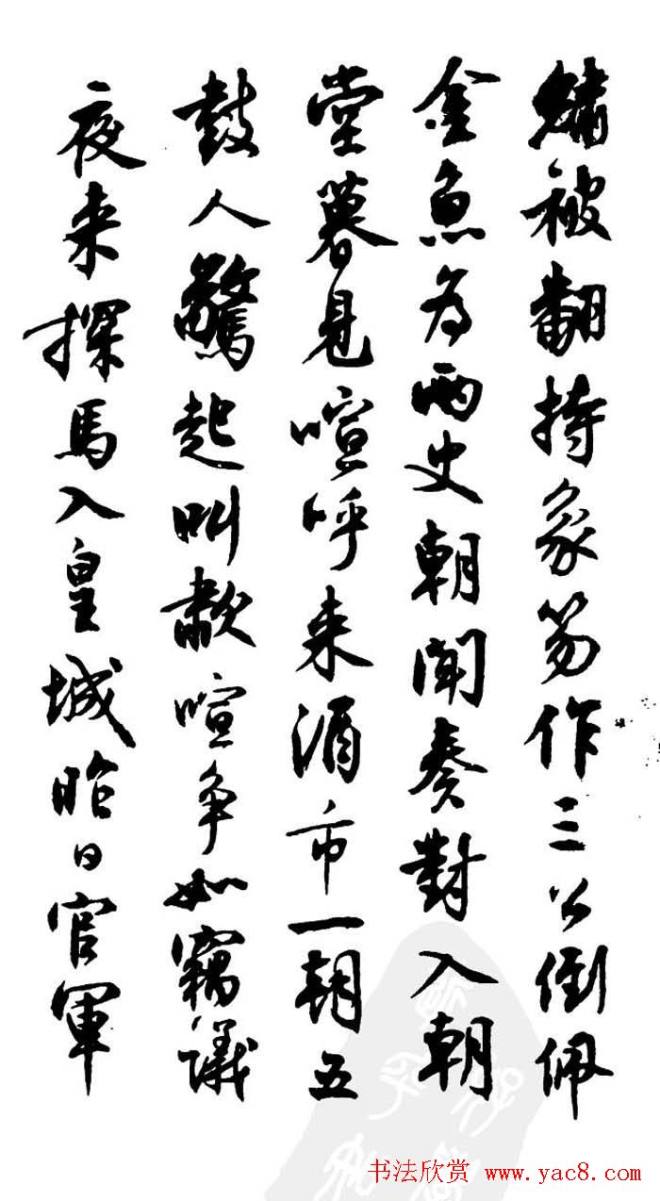 繡被翻持象笏作三公倒佩
金魚為兩史朝聞奏對入朝
堂暮見喧呼来酒市一朝五
鼓人驚起叫歗喧争如竊議
夜来探馬入皇城昨日官軍
书法欣赏 www.yac8.com